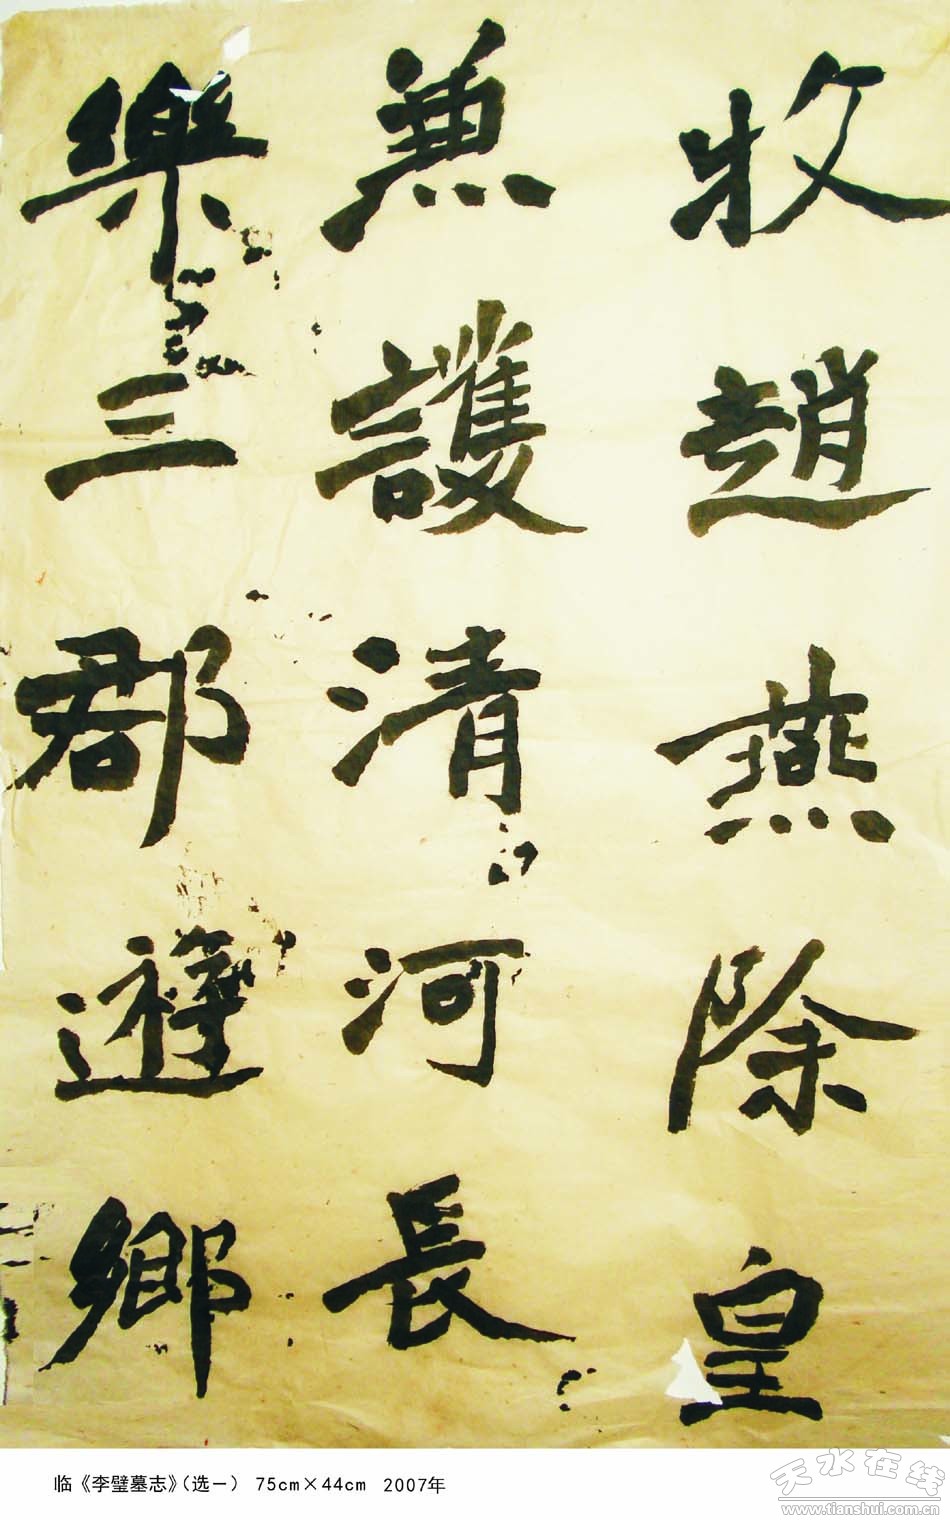 牧趙燕除皇
兼護清河長
樂三郡遊鄉
临《李璧墓志》（选一） 75cm×44cm 2007年
天水在线
www.tianshui.com.cn